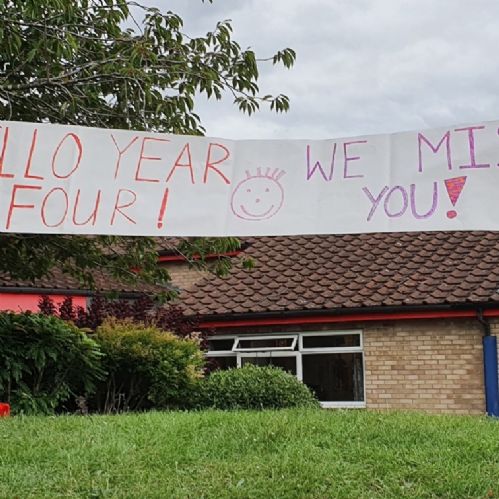 LLO YEAR WE MI
FOUR! YOU!